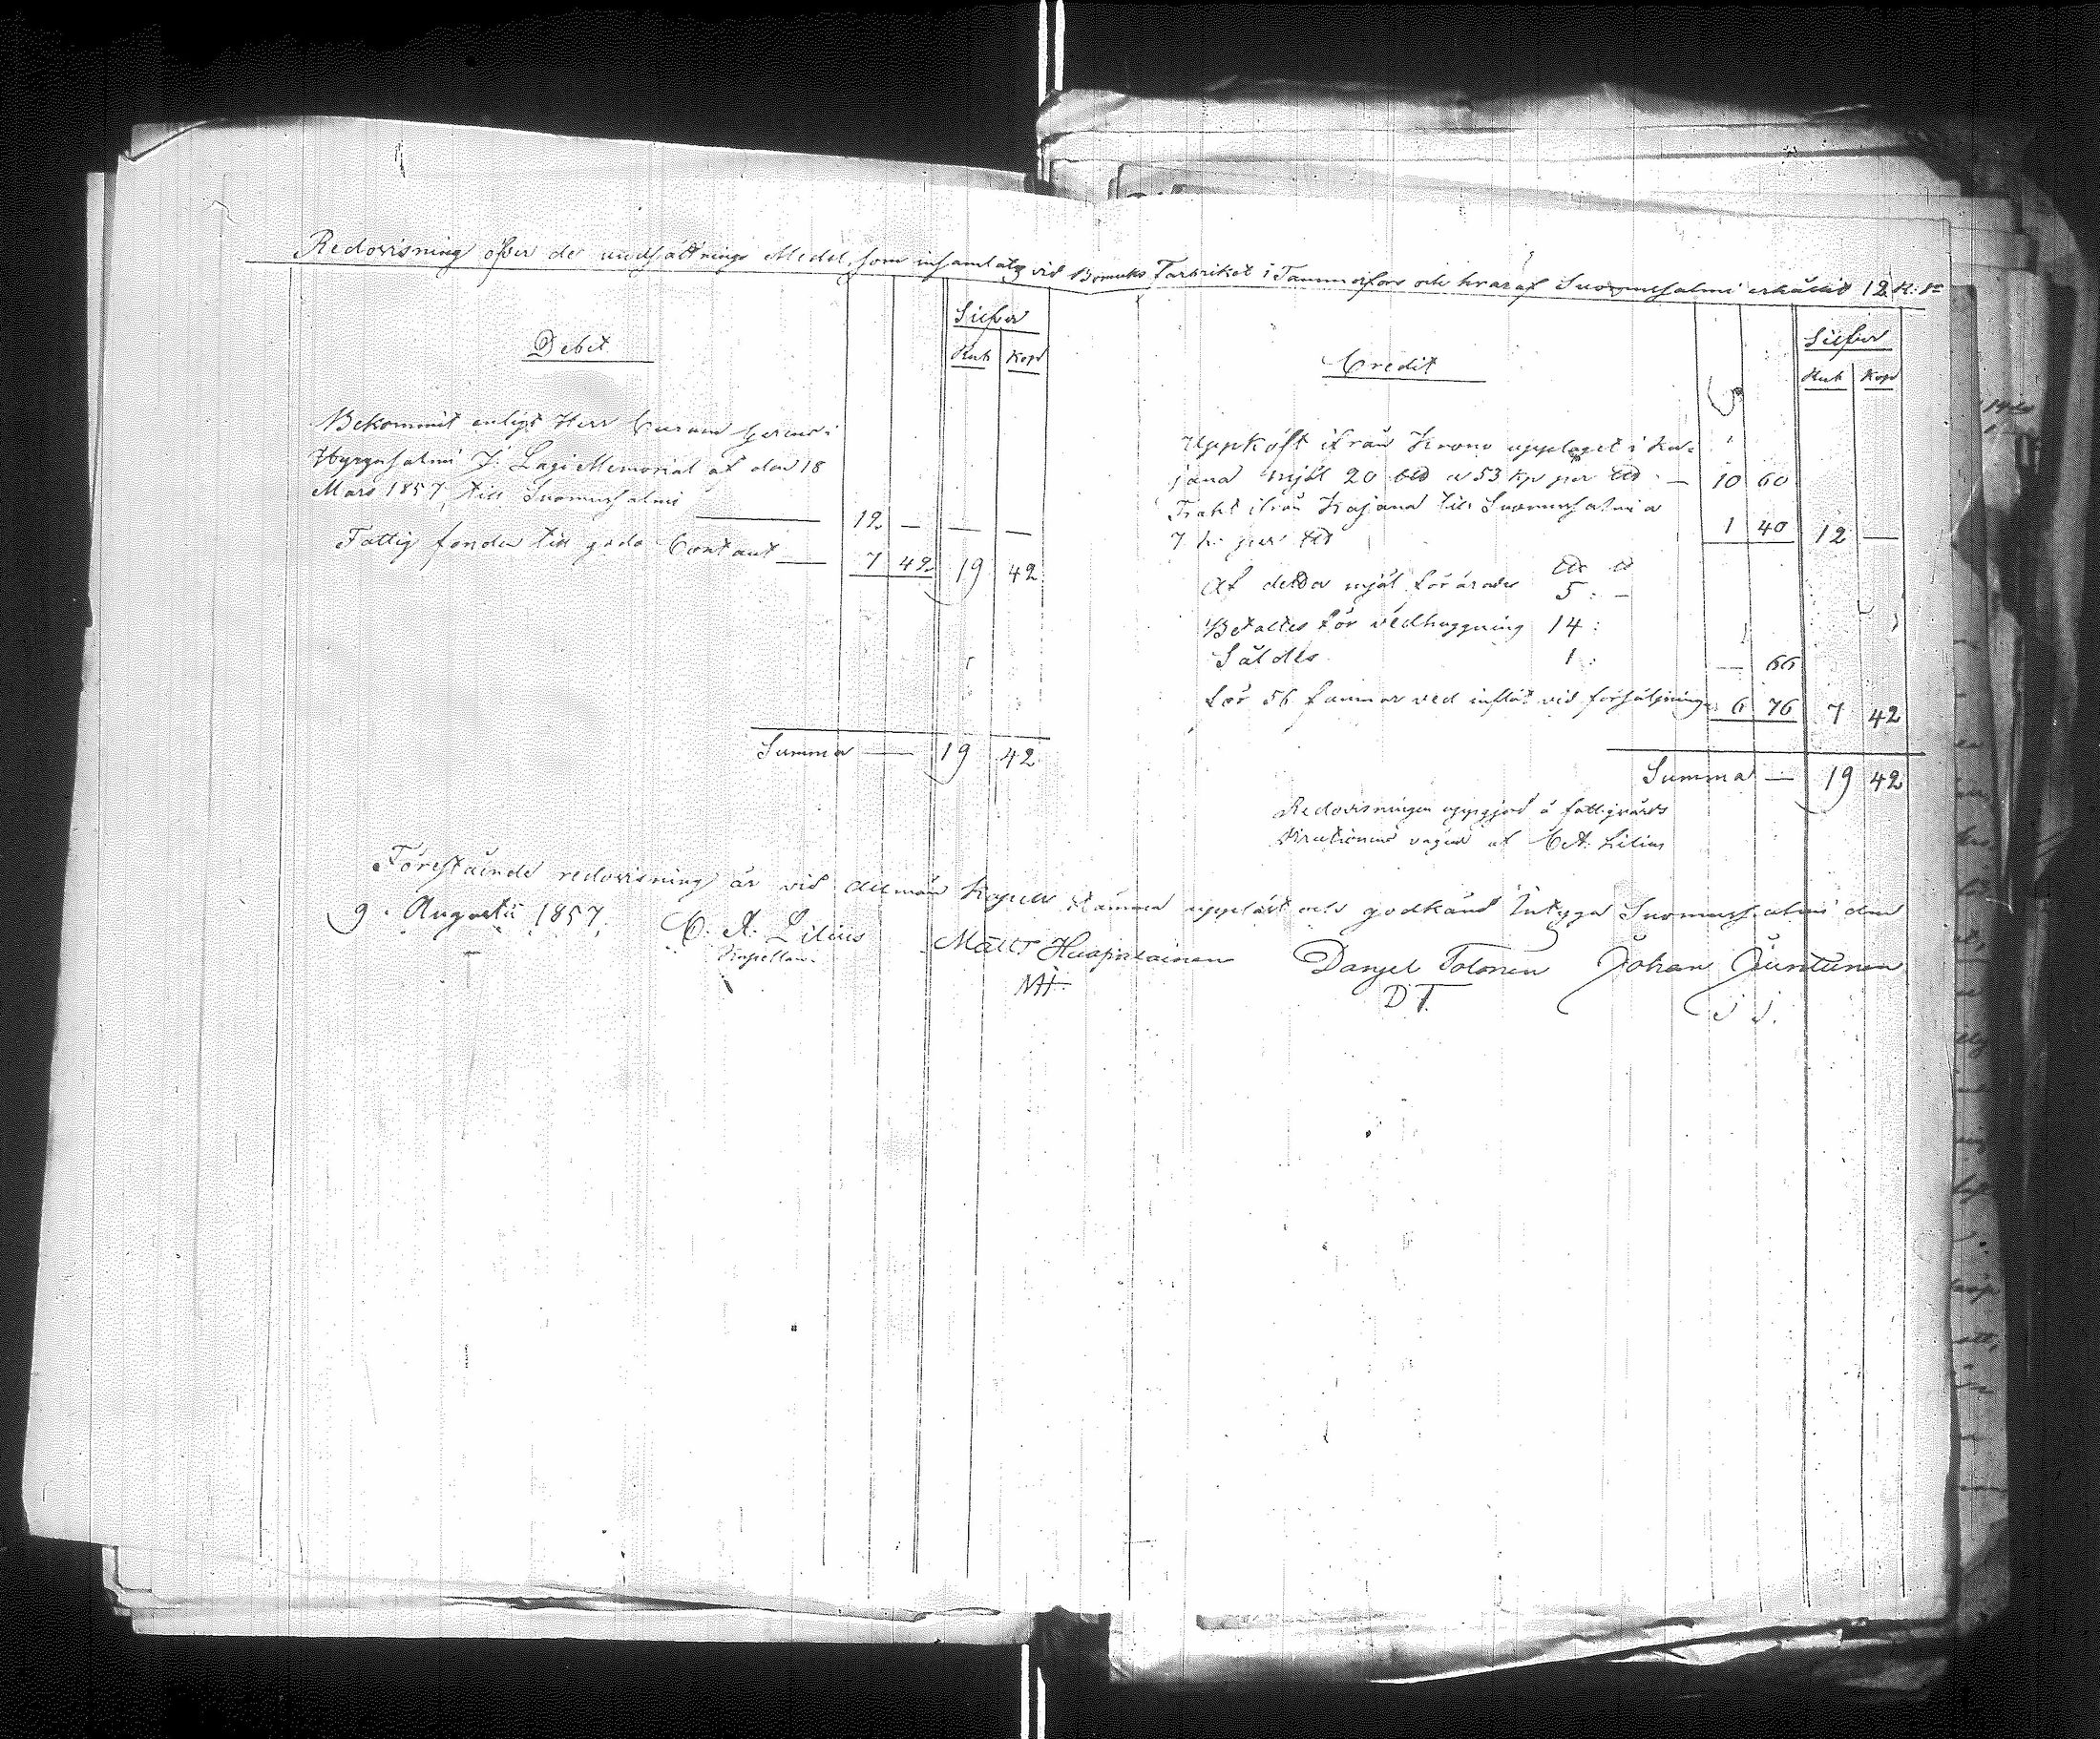 Redovisning öfver de undsättnings Medel, som insamlats vid Bomuls Fabriket i Tammerfors och hvaraf Suomussalmi erhållit 12 R. Sr
Debet
Silfver
Rub Kop
Bekommit enligt Herr
Hyrynsalmi J. Lagi Memorial af den 18
Mars 1857, till Suomussalmi — 12 — — —
Fattig fonden till godo Contant — 7 42 19 42
Summa — 19 42
Credit
Silfver
Rub Kop
Uppköpt ifrån Krono upplaget i Ka-
jana mjöl 20 a 53 kp per — 10 60
Frakt ifrån Kajana till Suomussalmi a
7 k. per 1 40 12 —
Af detta mjöl förärades 5 : —
Betaltes för vedhuggning 14 :
Såldes 1 : — 66
för 56 famnar ved influt. vid försäljning 6 76 7 42
Summa — 19 42
Redovisningen uppgjord å fattigvårds
Direktionens vägnar af C. A. Lilius
Förestående redovisning är vid allmän Kapell stämma uppläst och godkänd Intyga Suomussalmi den
9. Augusti 1857. C. A. Lilius
Kapellan.
Matts Huapalainen
MH
Danjel Tolonen
D T.
Johan Juntunen
J J.